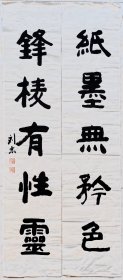 紙墨無矜色
鋒棱有性靈